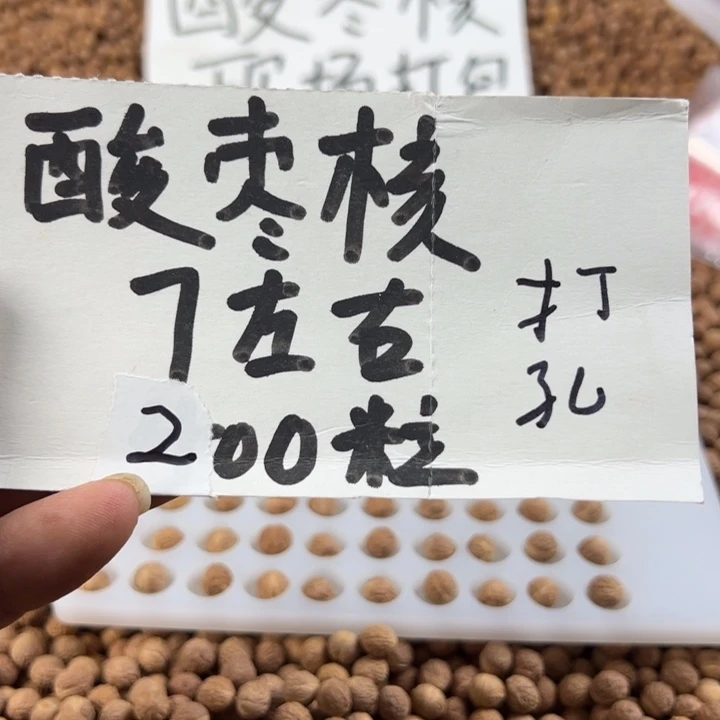 酸枣核
现场打包
酸枣核
7左右
200粒
打
孔